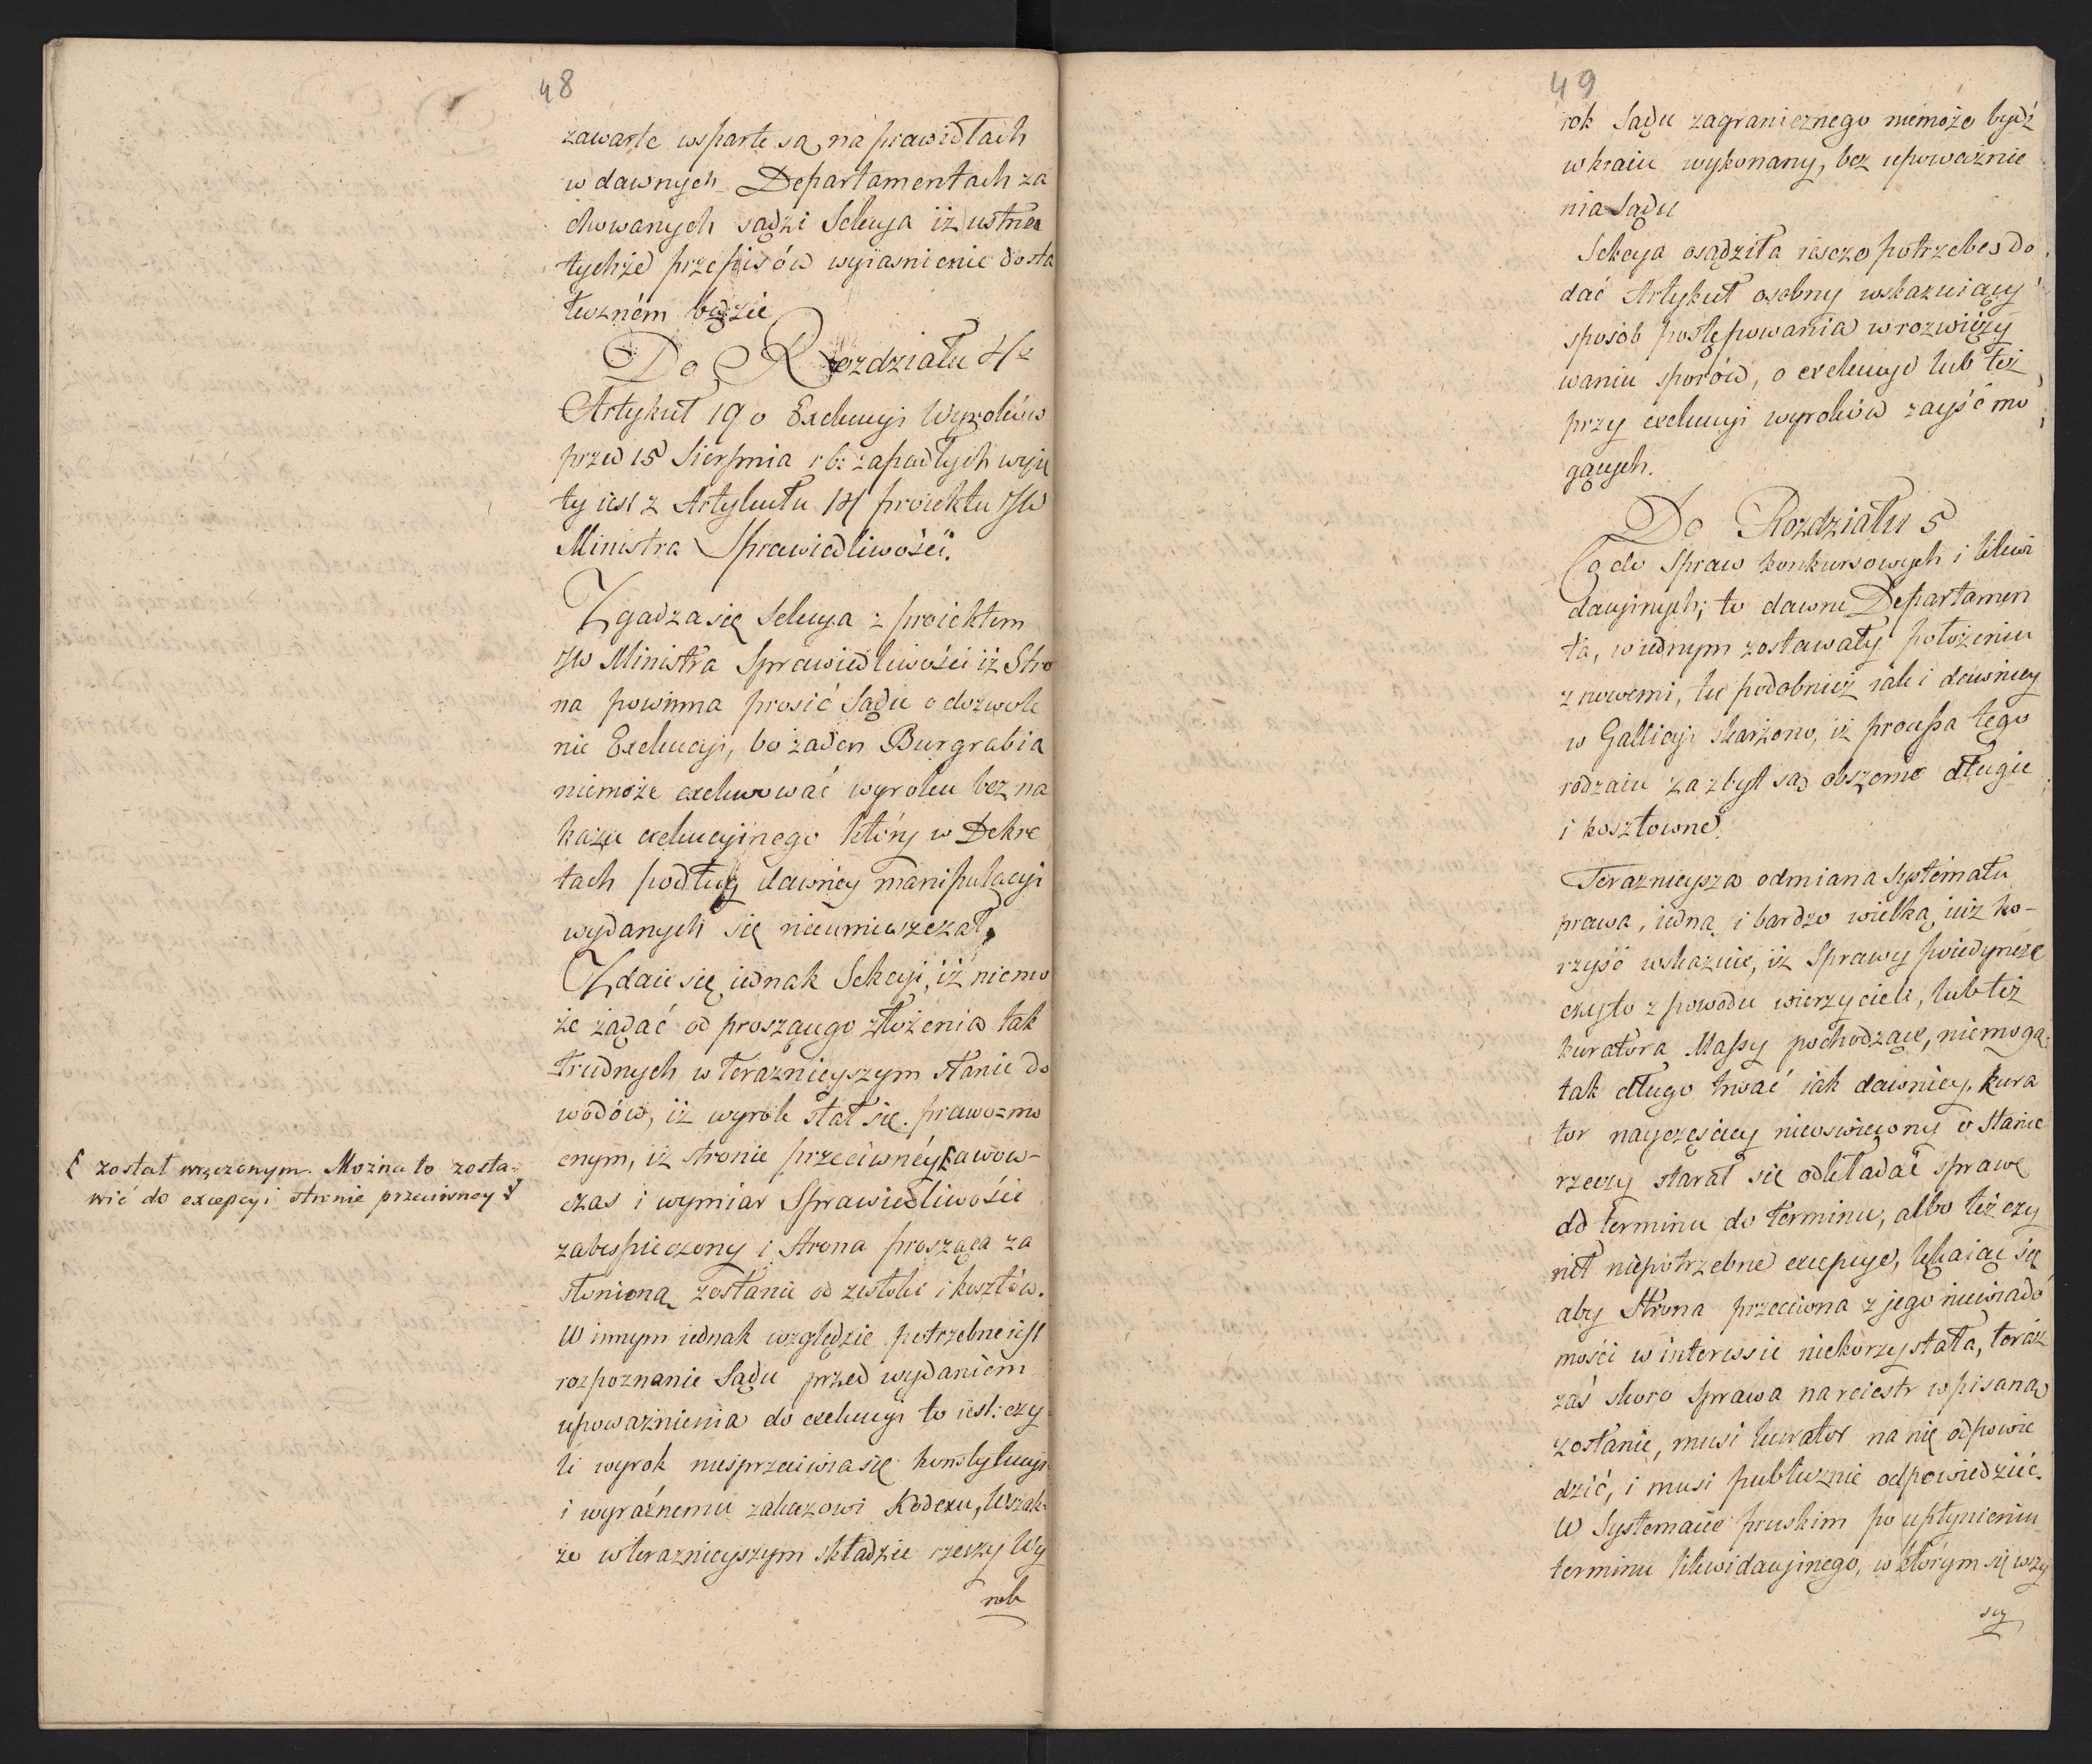 48
zawarte wsparte są na prawidłach
w dawnych Departamentach za
chowanych sądzi Sekcya iż ustne
tychże przepisów wyiasnienie dosta
teczném będzie
Do Rozdziału 4
Artykuł 19 o Exekucyi Wyroków
przed 15 Sierpnia r b: zapadłych wyię
ty iest z Artykułu 14 proiektu JW
Ministra Sprawiedliwości.
Zgadza się Sekcya z proiektem
JW Ministra Sprawiedliwości iż Stro
na powinna prosić Sądu o dozwole
nie Exekucyi, bo żaden Burgrabia
niemoże exekwować wyroku bez na
kazu exekucyinego który w Dekre
tach podług dawnéy manipulacyi
wydanych się nieumieszczał,
Zdaie się iednak Sekcyi, iż niemo
że żądać od proszącego złożenia tak
trudnych w teraznieyszym stanie do
wodów, iż wyrok stał się prawozmo
cnym, iż stronie przeciwnéy a wów-
został wręczonym. Można to zosta-
wić do excepcyi stronie przeciwney
czas i wymiar Sprawiedliwości
zabespieczony i Strona prosząca za
słonioną zostanie od zwłoki i kosztów.
W innym iednak względzie potrzebne iest
rozpoznanie Sądu przed wydaniem
upoważnienia do exekucyi to iest: czy
li wyrok niesprzeciwia się konstytucyi
i wyraźnemu zakazowi Kodexu, wszak-
że w teraznieyszym składzie rzeczy Wy
rok
49
rok Sądu zagranicznego niemoże bydź
w kraiu wykonany, bez upoważnie
nia Sądu
Sekcya osądziła ieszcze potrzebę do
dać Artykuł osobny wskazuiący
sposób postępowania w rozwięzy
waniu sporów, o exekucyę lub też
przy exekucyi wyroków zayść mo
gących.
Do Rozdziału 5
Co do Spraw konkursowych i likwi
dacyinych; to dawne Departamen
ta, w iednym zostawały położeniu
z nowemi, tu podobnież iak i dawniey
w Gallicyi skarżono, iż processa tego
rodzaiu zazbyt są obszerne długie
i kosztowne.
Teraznieysza odmiana Systematu
prawa, iedną i bardzo wielką iuż ko-
rzyść wskazuie, iż Sprawy poiedyncze
czyto z powodu wierzycieli, lub też
kuratora Massy pochodzące, niemogą
tak długo trwać iak dawniey, kura
tor nayczęściey nieoswiecony o stanie
rzeczy starał się odkładać sprawę
od terminu do terminu, albo też czy
nił niepotrzebne excepcye, lękaiąc się
aby Strona przeciwna z jego niewiado
mości w interessie niekorzystała, teraz
zaś skoro Sprawa na reiestr wpisaną
zostanie, musi kurator na nię odpowie
dzić, i musi publicznie odpowiedzić.
W Systemacie pruskim po upłynieniu
terminu likwidacyinego, w którym się wszy
scy